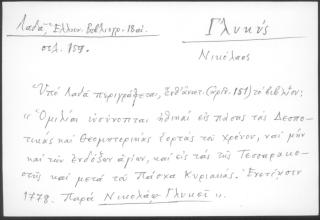 Λαδᾶ, Ἑλλην. Βιβλιογρ. 18 αἰ.
σελ. 159.
Γλυκύς
Νικόλαος
Ὑπὸ Λαδᾶ περιγράφεται, (ἀριθ. 151) τὸ βιβλίον:
« Ὁμιλίαι ψυχωφελεῖς καὶ ἠθικαὶ εἰς πάσας τὰς Δεσπο-
τικὰς καὶ Θεομητορικὰς ἑορτὰς τοῦ χρόνου, καὶ μὴν
καὶ τῶν ἐνδόξων ἁγίων, καὶ εἰς τὰς τῆς Τεσσαρακο-
στῆς καὶ μετὰ τοῦ Πάσχα Κυριακάς. Ἐνετίησιν
1778. Παρὰ Νικολάῳ Γλυκεῖ ».